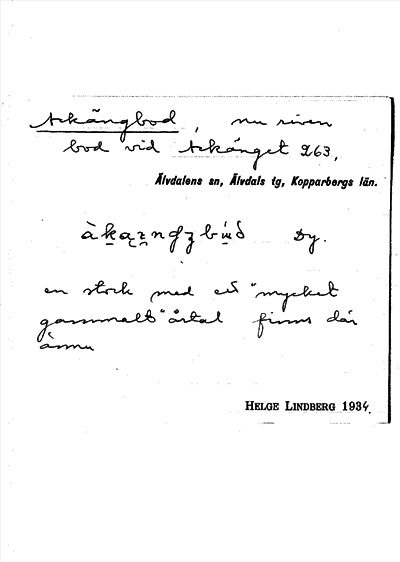 Ackängbod, nu riven
bod vid Ackänget 263,
Älvdalens sn, Älvdals tg, Kopparbergs län.
Dy.
en stock med ett "mycket
gammalt" årtal finns där
ännu
HELGE LINDBERG 1934.